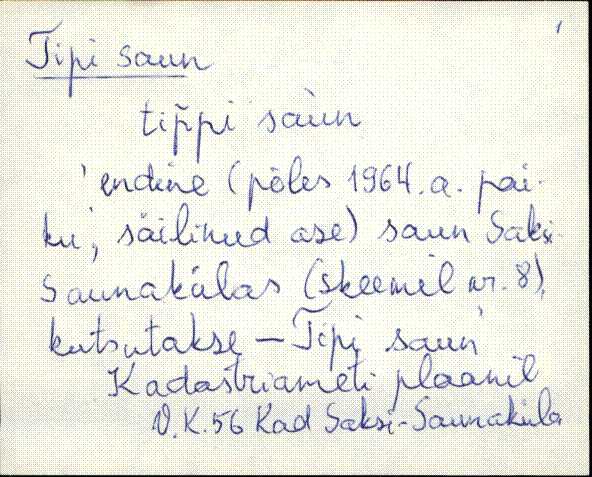 1
Tipi saun
tip̌pi saùn
'endine (põles 1964.a. pai-
ku', säilinud ase) saun Saksi
Saunakülas (skeemil nr. 8),
kutsutakse — Tipi saun'
Kadastriameti plaanil
V.K.56 Kad Saksi-Saunaküla